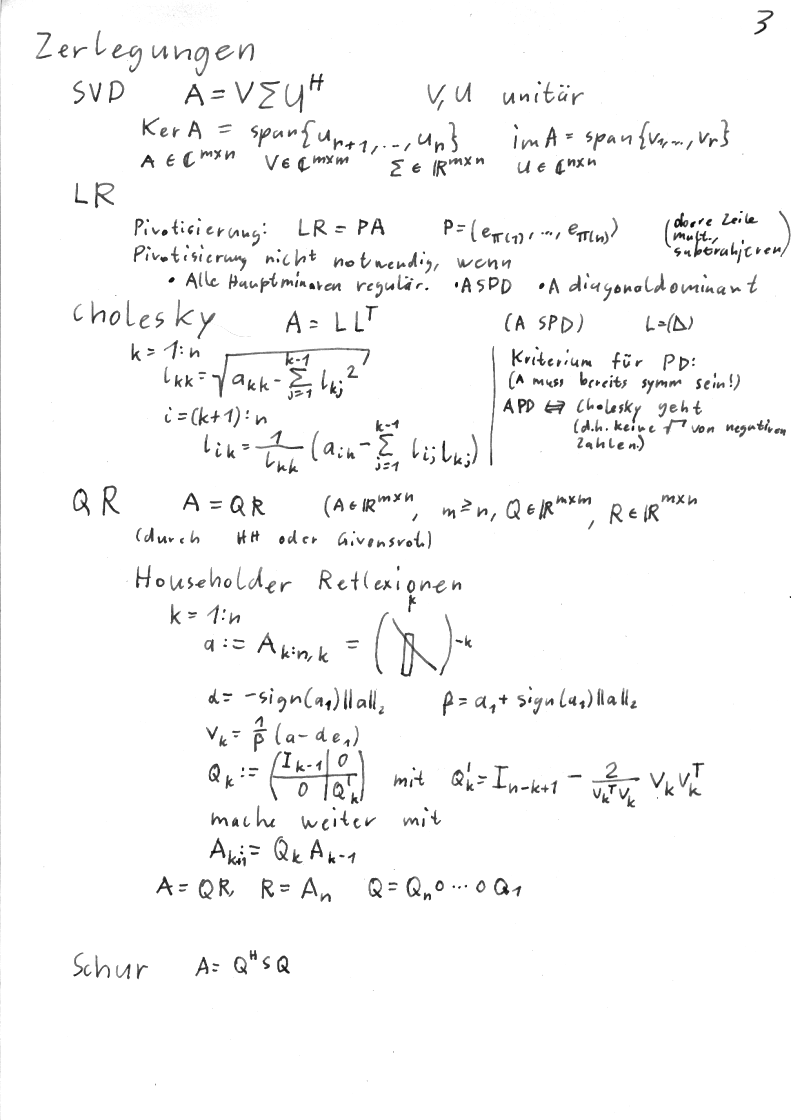 3
Zerlegungen
SVD A = VΣU^H V, U unitär
Ker A = span{u_{r+1}, ..., u_n} im A = span{v_1, ..., v_r}
A ∈ ℂ^{m×n} V ∈ ℂ^{m×m} Σ ∈ ℝ^{m×n} U ∈ ℂ^{n×n}
LR
Pivotisierung: LR = PA P = (e_{π(1)}, ..., e_{π(n)}) (obere Zeile mult., subtrahieren)
Pivotisierung nicht notwendig, wenn
• Alle Hauptminoren regulär. • A SPD • A diagonaldominant
Cholesky A = LL^T (A SPD) L=(◺)
k = 1:n
l_{kk} = √(a_{kk} - Σ_{j=1}^{k-1} l_{kj}^2)
i = (k+1):n
l_{ik} = 1/l_{kk} (a_{ik} - Σ_{j=1}^{k-1} l_{ij} l_{kj})
Kriterium für PD:
(A muss bereits symm sein!)
A PD ⇔ Cholesky geht
(d.h. keine √ von negativen
Zahlen.)
QR A = QR (A ∈ ℝ^{m×n}, m ≥ n, Q ∈ ℝ^{m×m}, R ∈ ℝ^{m×n}
(durch HH oder Givensrot.)
Householder Reflexionen
k = 1:n
a := A_{k:n,k} = ( ) -k
k
α = -sign(a_1)||a||_2 β = a_1 + sign(a_1)||a||_2
v_k = 1/β (a - αe_1)
Q_k := (I_{k-1} | 0 / 0 | Q'_k) mit Q'_k = I_{n-k+1} - 2/(v_k^T v_k) v_k v_k^T
mache weiter mit
A_k := Q_k A_{k-1}
A = QR, R = A_n Q = Q_n ∘ ... ∘ Q_1
Schur A = Q^H S Q